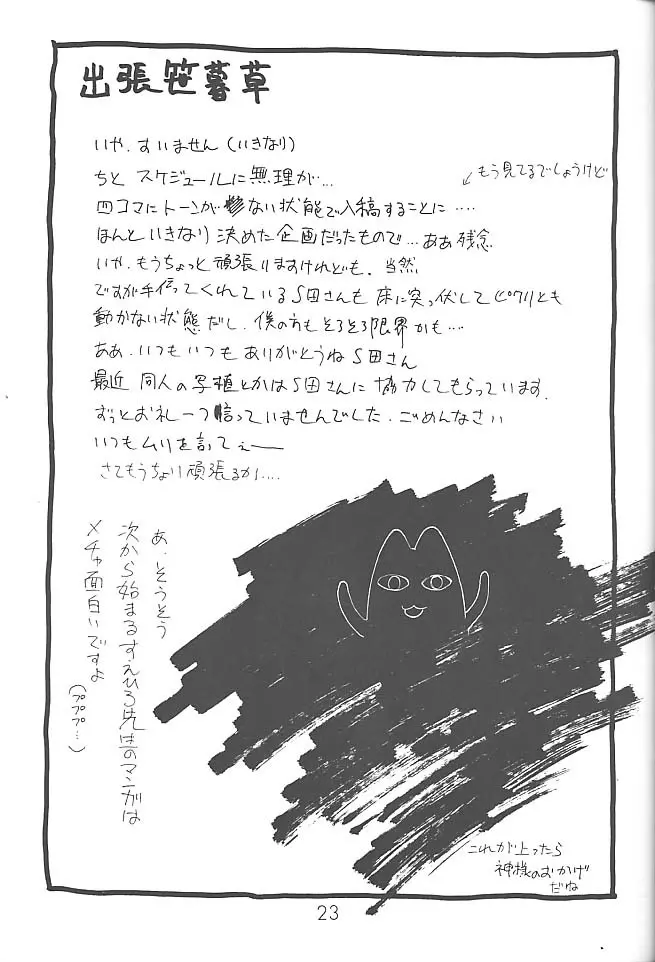 出張笹暮草
いや、すいません（いきなり）
ちと スケジュールに無理が…
↙もう見てるでしょうけど
四コマにトーンが ない状態で入稿することに….
ほんといきなり決めた企画だったもので…ああ残念
いや、もうちょっと頑張りますけれども、当然
ですが手伝ってくれているS田さんも 床に突っ伏してピクリとも
動かない状態だし、僕の方もそろそろ限界かも…
ああ、いつもいつも ありがとうね S田さん
最近 同人の写植とかはS田さんに 協力してもらっています.
ずっとお礼一つ言っていませんでした. ごめんなさい
いつもムリを言ってぇ——
さてもうちょい頑張るか….
あ、そうそう
次から始まるすえひろ先生のマンガは
メチャ面白いですよ
（ププププ…）
これが上ったら
神様のおかげ
だね
23